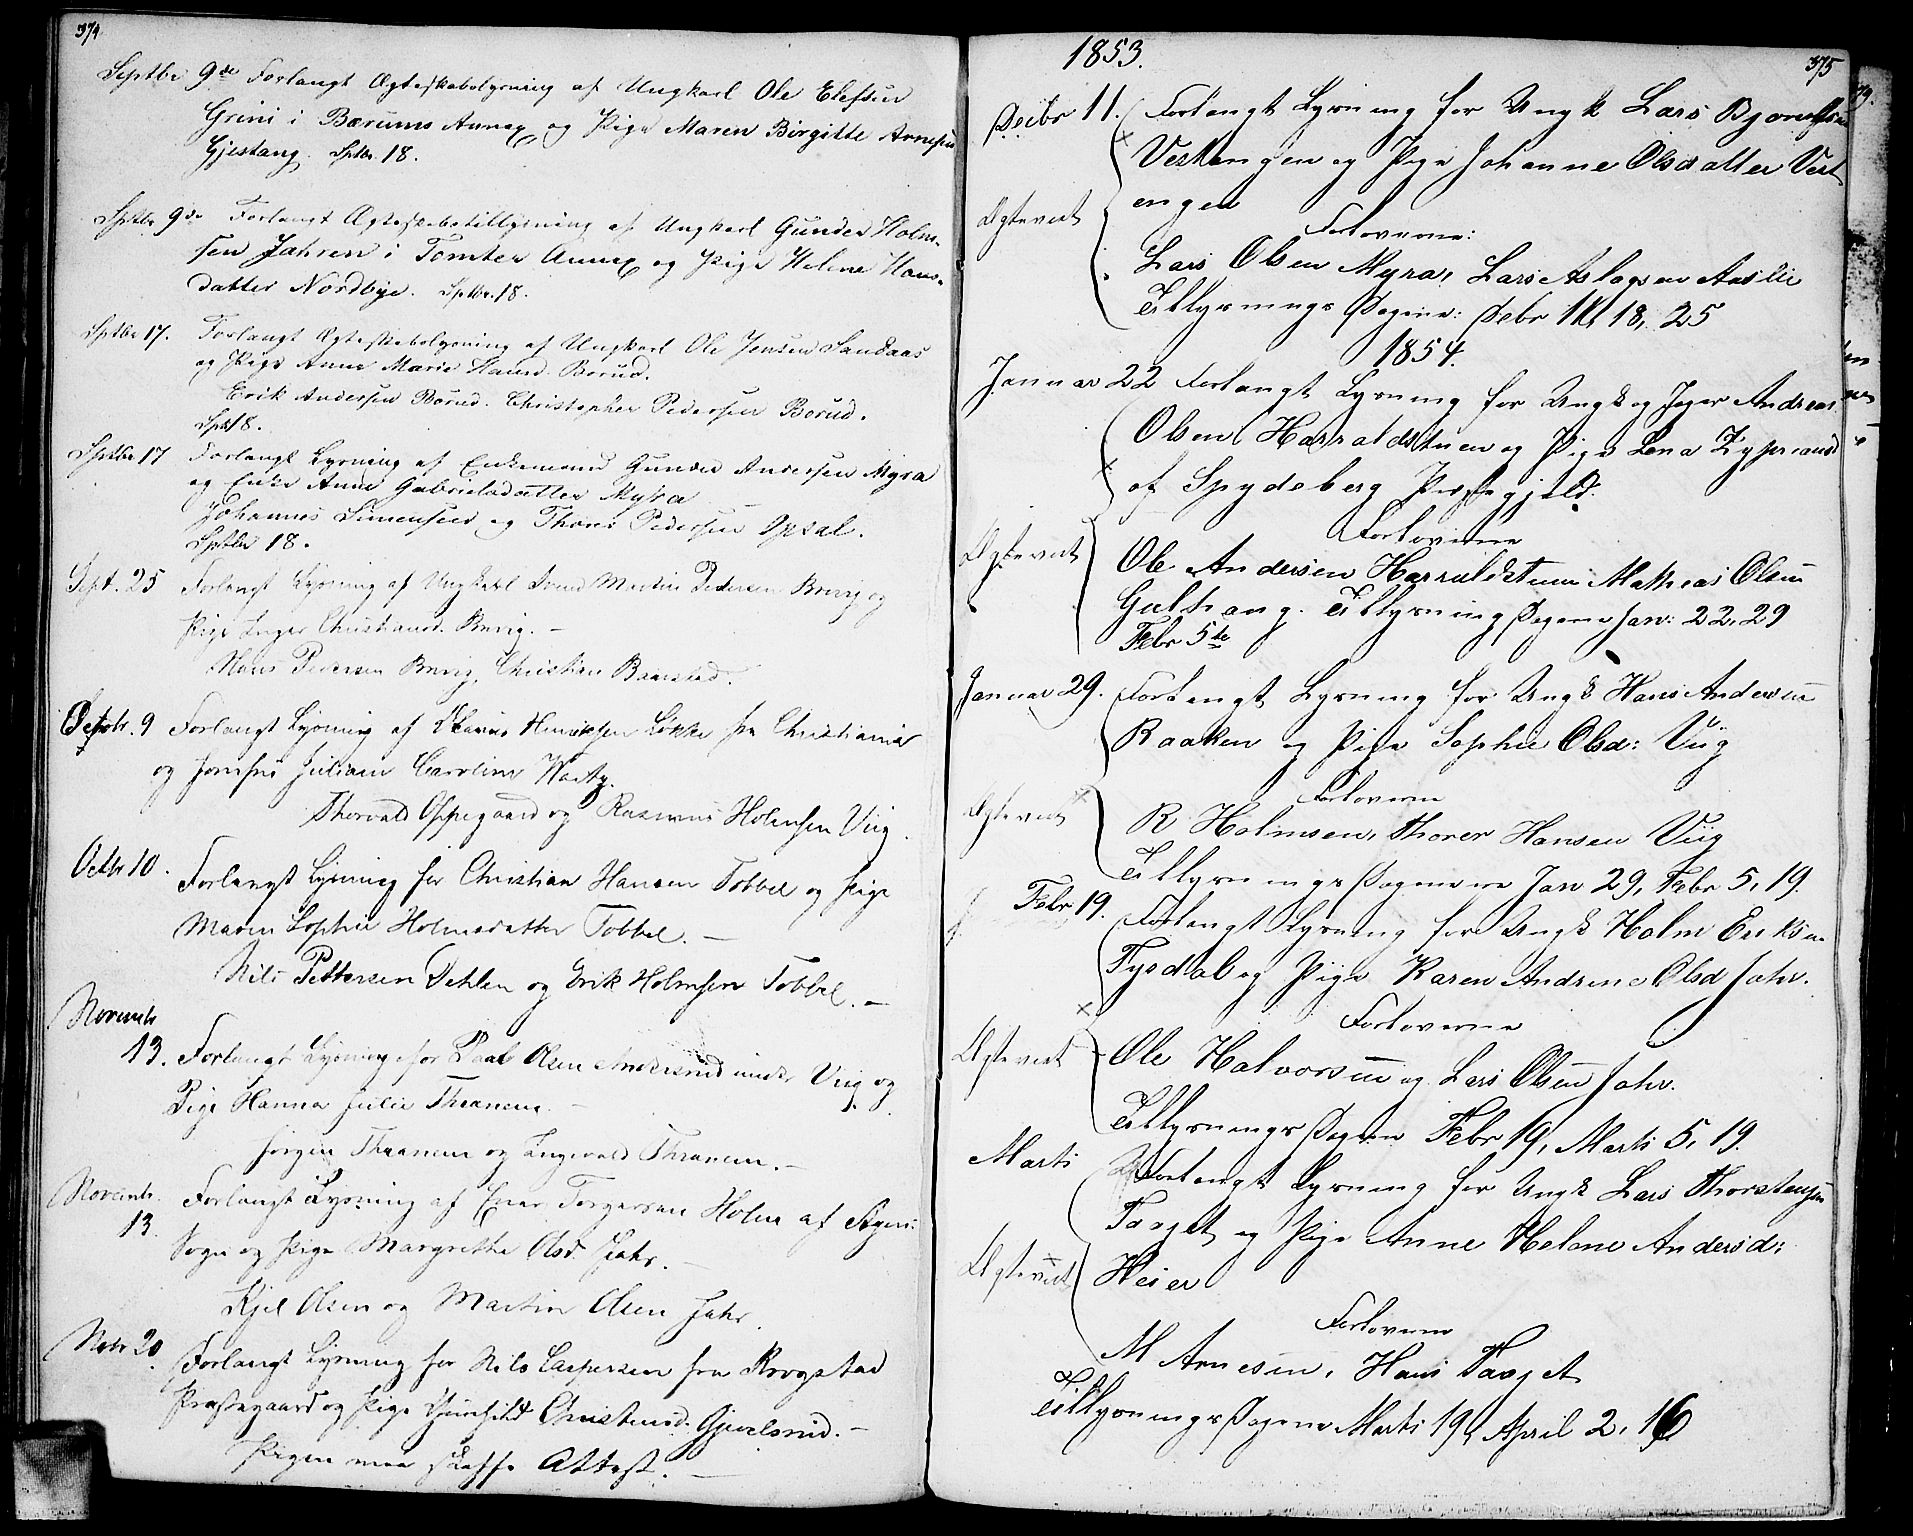 374
Septbr 9de Forlangt Ægteskabslysning af Ungkarl Ole Elefsen
Grini i Bærums Annex og Pige Maren Birgitte Arnesen
Gjestang. Sptbr. 18.
Sptbr 9de Forlangt Ægteskabstillysning af Ungkarl Gunder Holm-
sen Jahren i Tomter Annex og Pige Helene Hans-
datter Nordbye. Sptbr. 18.
Sptbr 17. Forlangt Ægteskabslysning af Ungkarl Ole Jensen Sandaas
og Pige Anne Marie Hansd. Borud.
Erik Andersen Borud. Christopher Pedersen Borud.
Sptbr 18.
Sptbr 17 Forlangt Lysning af Enkemand Gunder Andersen Myra
og Enke Anne Gabrielsdatter Myra
Johannes Simensen og Thomas Pedersen Opsal.
Sptbr 18.
Sept. 25 Forlangt Lysning af Ungkarl Svend Martin Pedersen Brevig og
Pige Inger Christiansd. Brevig. –
Hans Pedersen Brevig, Christian Baastad.
Octobr. 9 Forlangt Lysning af Henriksen Løkke fra Christiania
og Jomfru Juliane Caroline
Thorvald Oppegaard og Rasmus Holmsen Viig.
Octbr 10. Forlangt Lysning for Christian Hansen Tobbel og Pige
Maren Sophie Holmsdatter Tobbel. –
Nils Pettersen Dehlen og Erik Holmsen Tobbel. –
Novembr
13. Forlangt Lysning for Paal Olsen under Viig og
Pige Hanna Julie Thranem. –
Jørgen Thranem og Ingvald Thranem. –
Novembr. Forlangt Lysning af Einar Torgersen Holm af
13. Sogn og Pige Margrethe Olsd. Jahr. –
Kjel Olsen og Martin Olsen Jahr.
Novbr 20. Forlangt Lysning for Nils Caspersen fra Krogstad
Præstegaard og Pige Gunhild Christensd. Gjevelsrud. –
Pigen maa skaffe Attest. –
1853.
375
Decbr 11. Forlangt Lysning for Ungk Lars Bjørnsen
Vestengen og Pige Johanne Olsdatter Vest
engen
Ægteviet
Forloverne:
Lars Olsen Myra, Lars Aslagsen Aaslie
Tillysnings Dagene: Debr 11, 18, 25
1854.
Januar 22 Forlangt Lysning for Ungk og Jæger Andreas
Olsen Harraldstuen og Pige Lena Zypriansd
af Spydeberg Præstegjeld.
Ægteviet
Forloverne
Ole Andersen Harraldstuen Mathias Olsen
Gulhaug. Tillysning Dagene Jan: 22, 29
Febr 5te
Januar 29. Forlangt Lysning for Ungk Hans Andersen
Raaken og Pige Sophie Olsd: Viig
Ægteviet
Forloverne
R Holmsen, Thorer Hansen Viig
Tillysnings Dagene Jan 29, Febr 5, 19.
Febr 19. Forlangt Lysning for Ungk Holm Eriksen
Fysdal og Pige Karen Andrine Olsd Jahr.
Forloverne
Ægteviet
Ole Halvorsen og Lars Olsen Jahr.
Tillysnings Dagene Febr 19, Marts 5, 19.
Marts Forlangt Lysning for Ungk Lars Thorstensen
Taaget og Pige Anne Helene Andersd:
Ægteviet
Heier
Forloverne
M Arnesen, Hans Taaget
Tillysnings Dagene Marts 19, April 2, 16